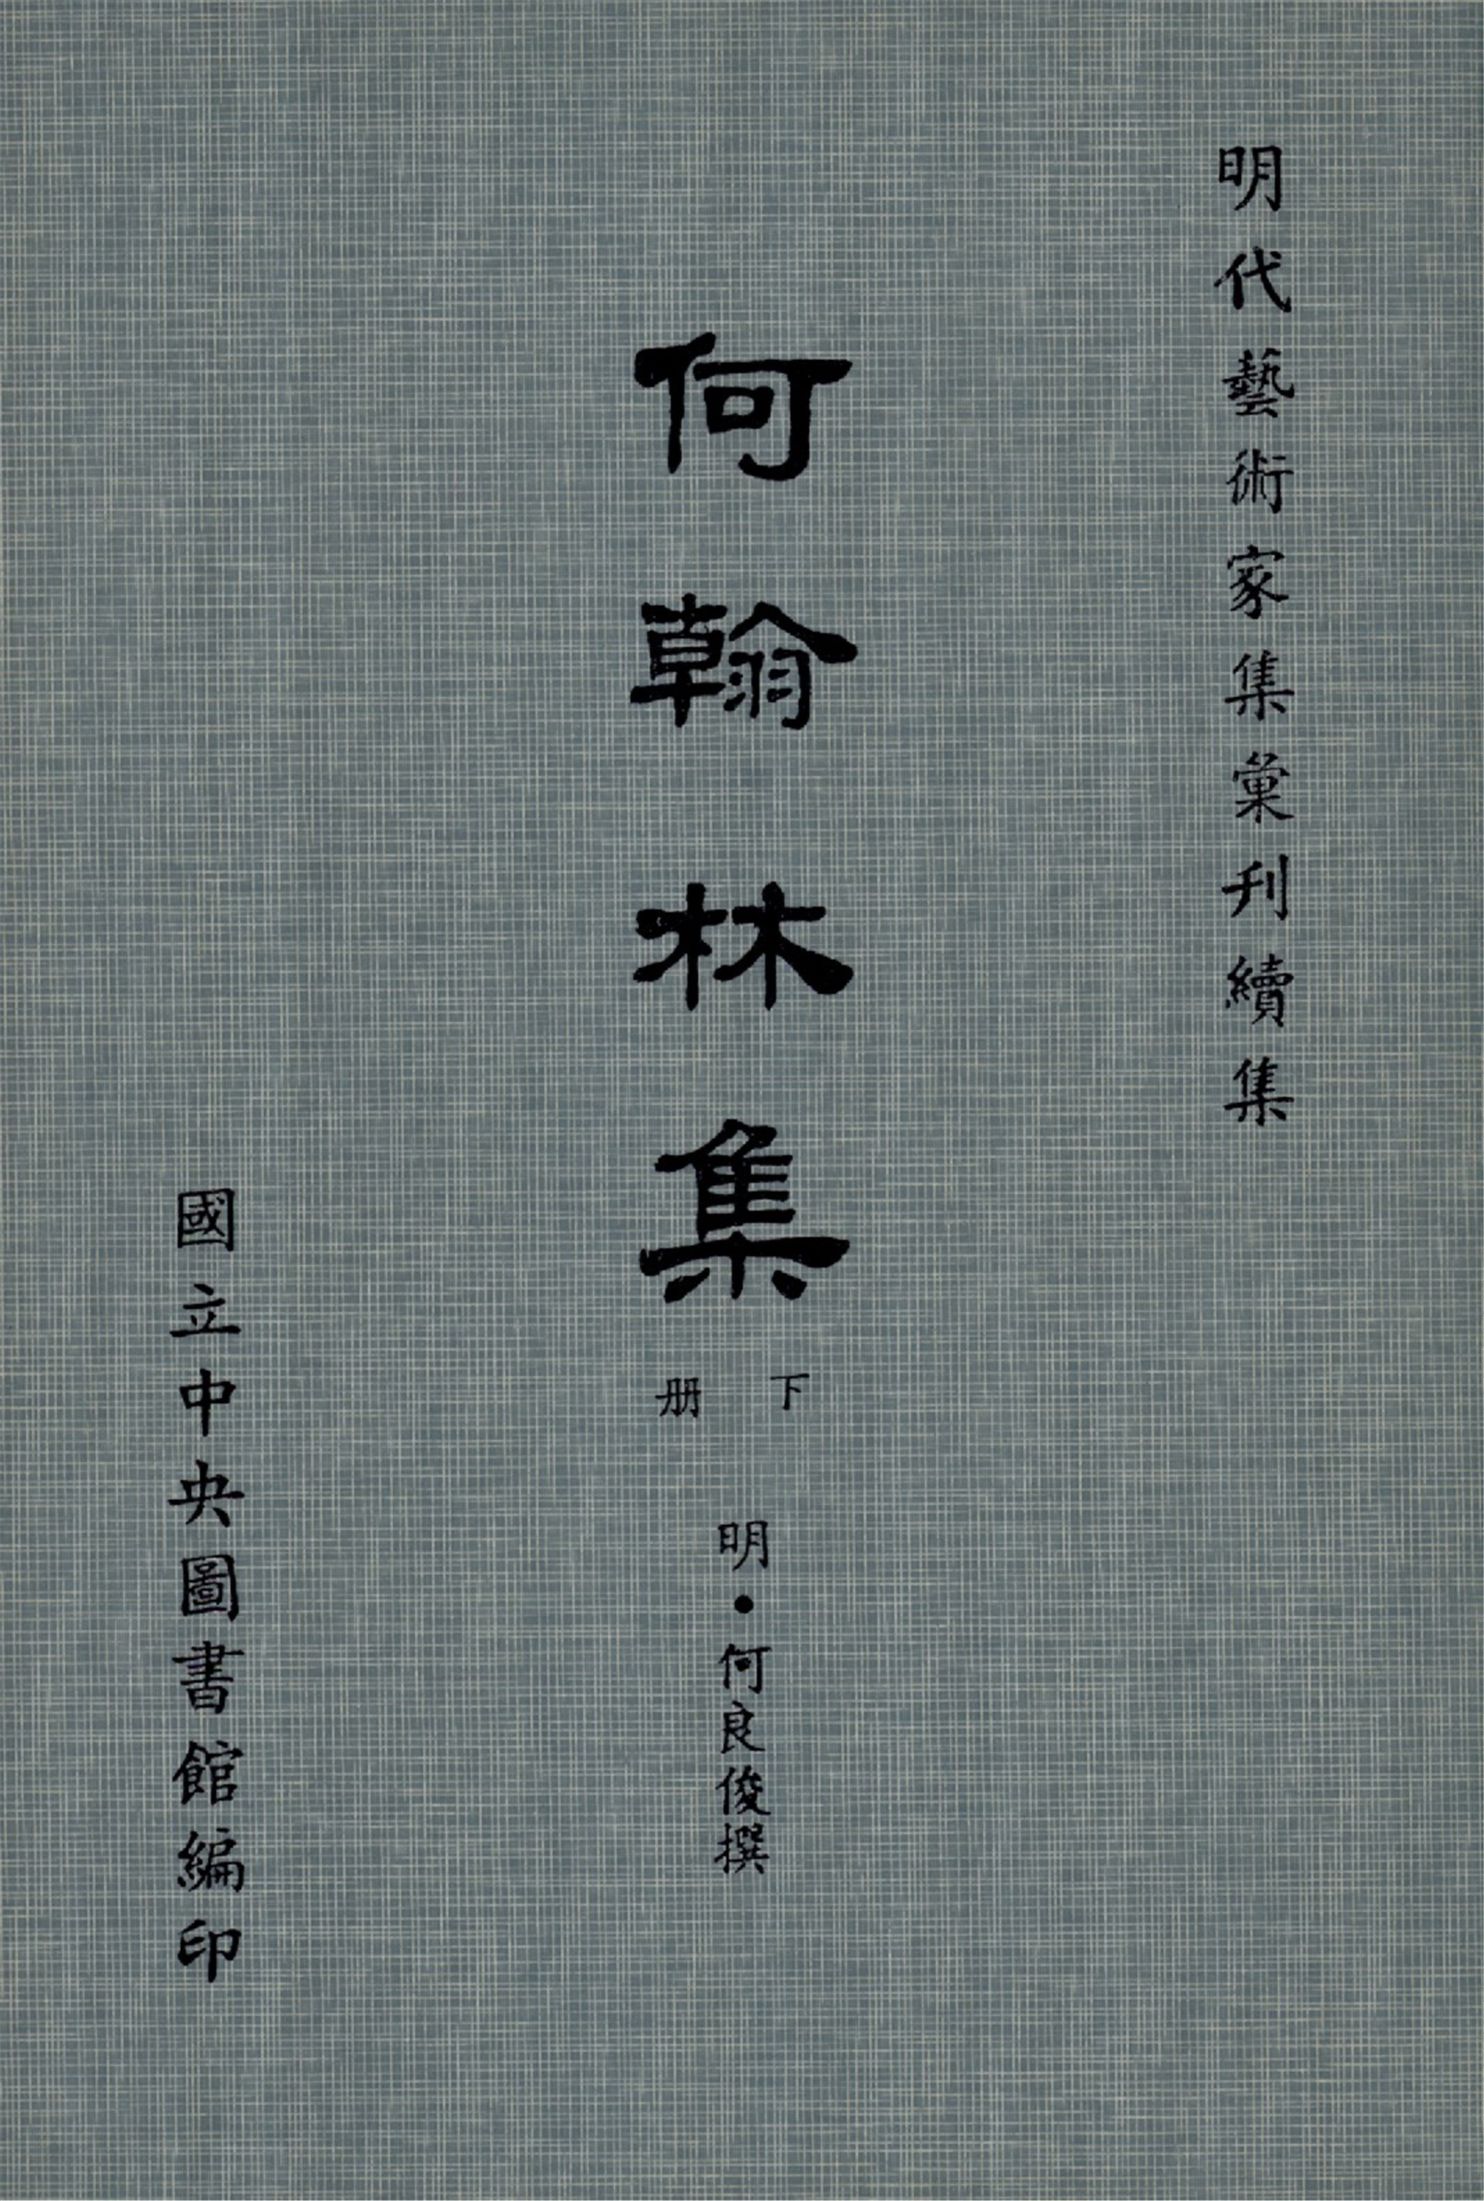 明代藝術家集彙刊續集
何翰林集
下册
明•何良俊撰
國立中央圖書館編印